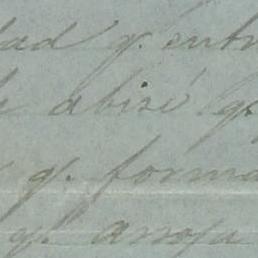 dad q. entr
abisé q.
q. forma
q. arroja